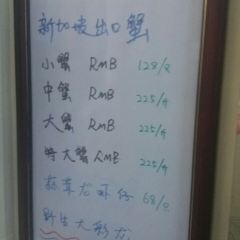 新加坡出口蟹
小蟹 RMB 128/只
中蟹 RMB 225/斤
大蟹 RMB 225/斤
特大蟹 RMB 225/斤
蒜茸龙虾仔 68/只
野生大彩龙